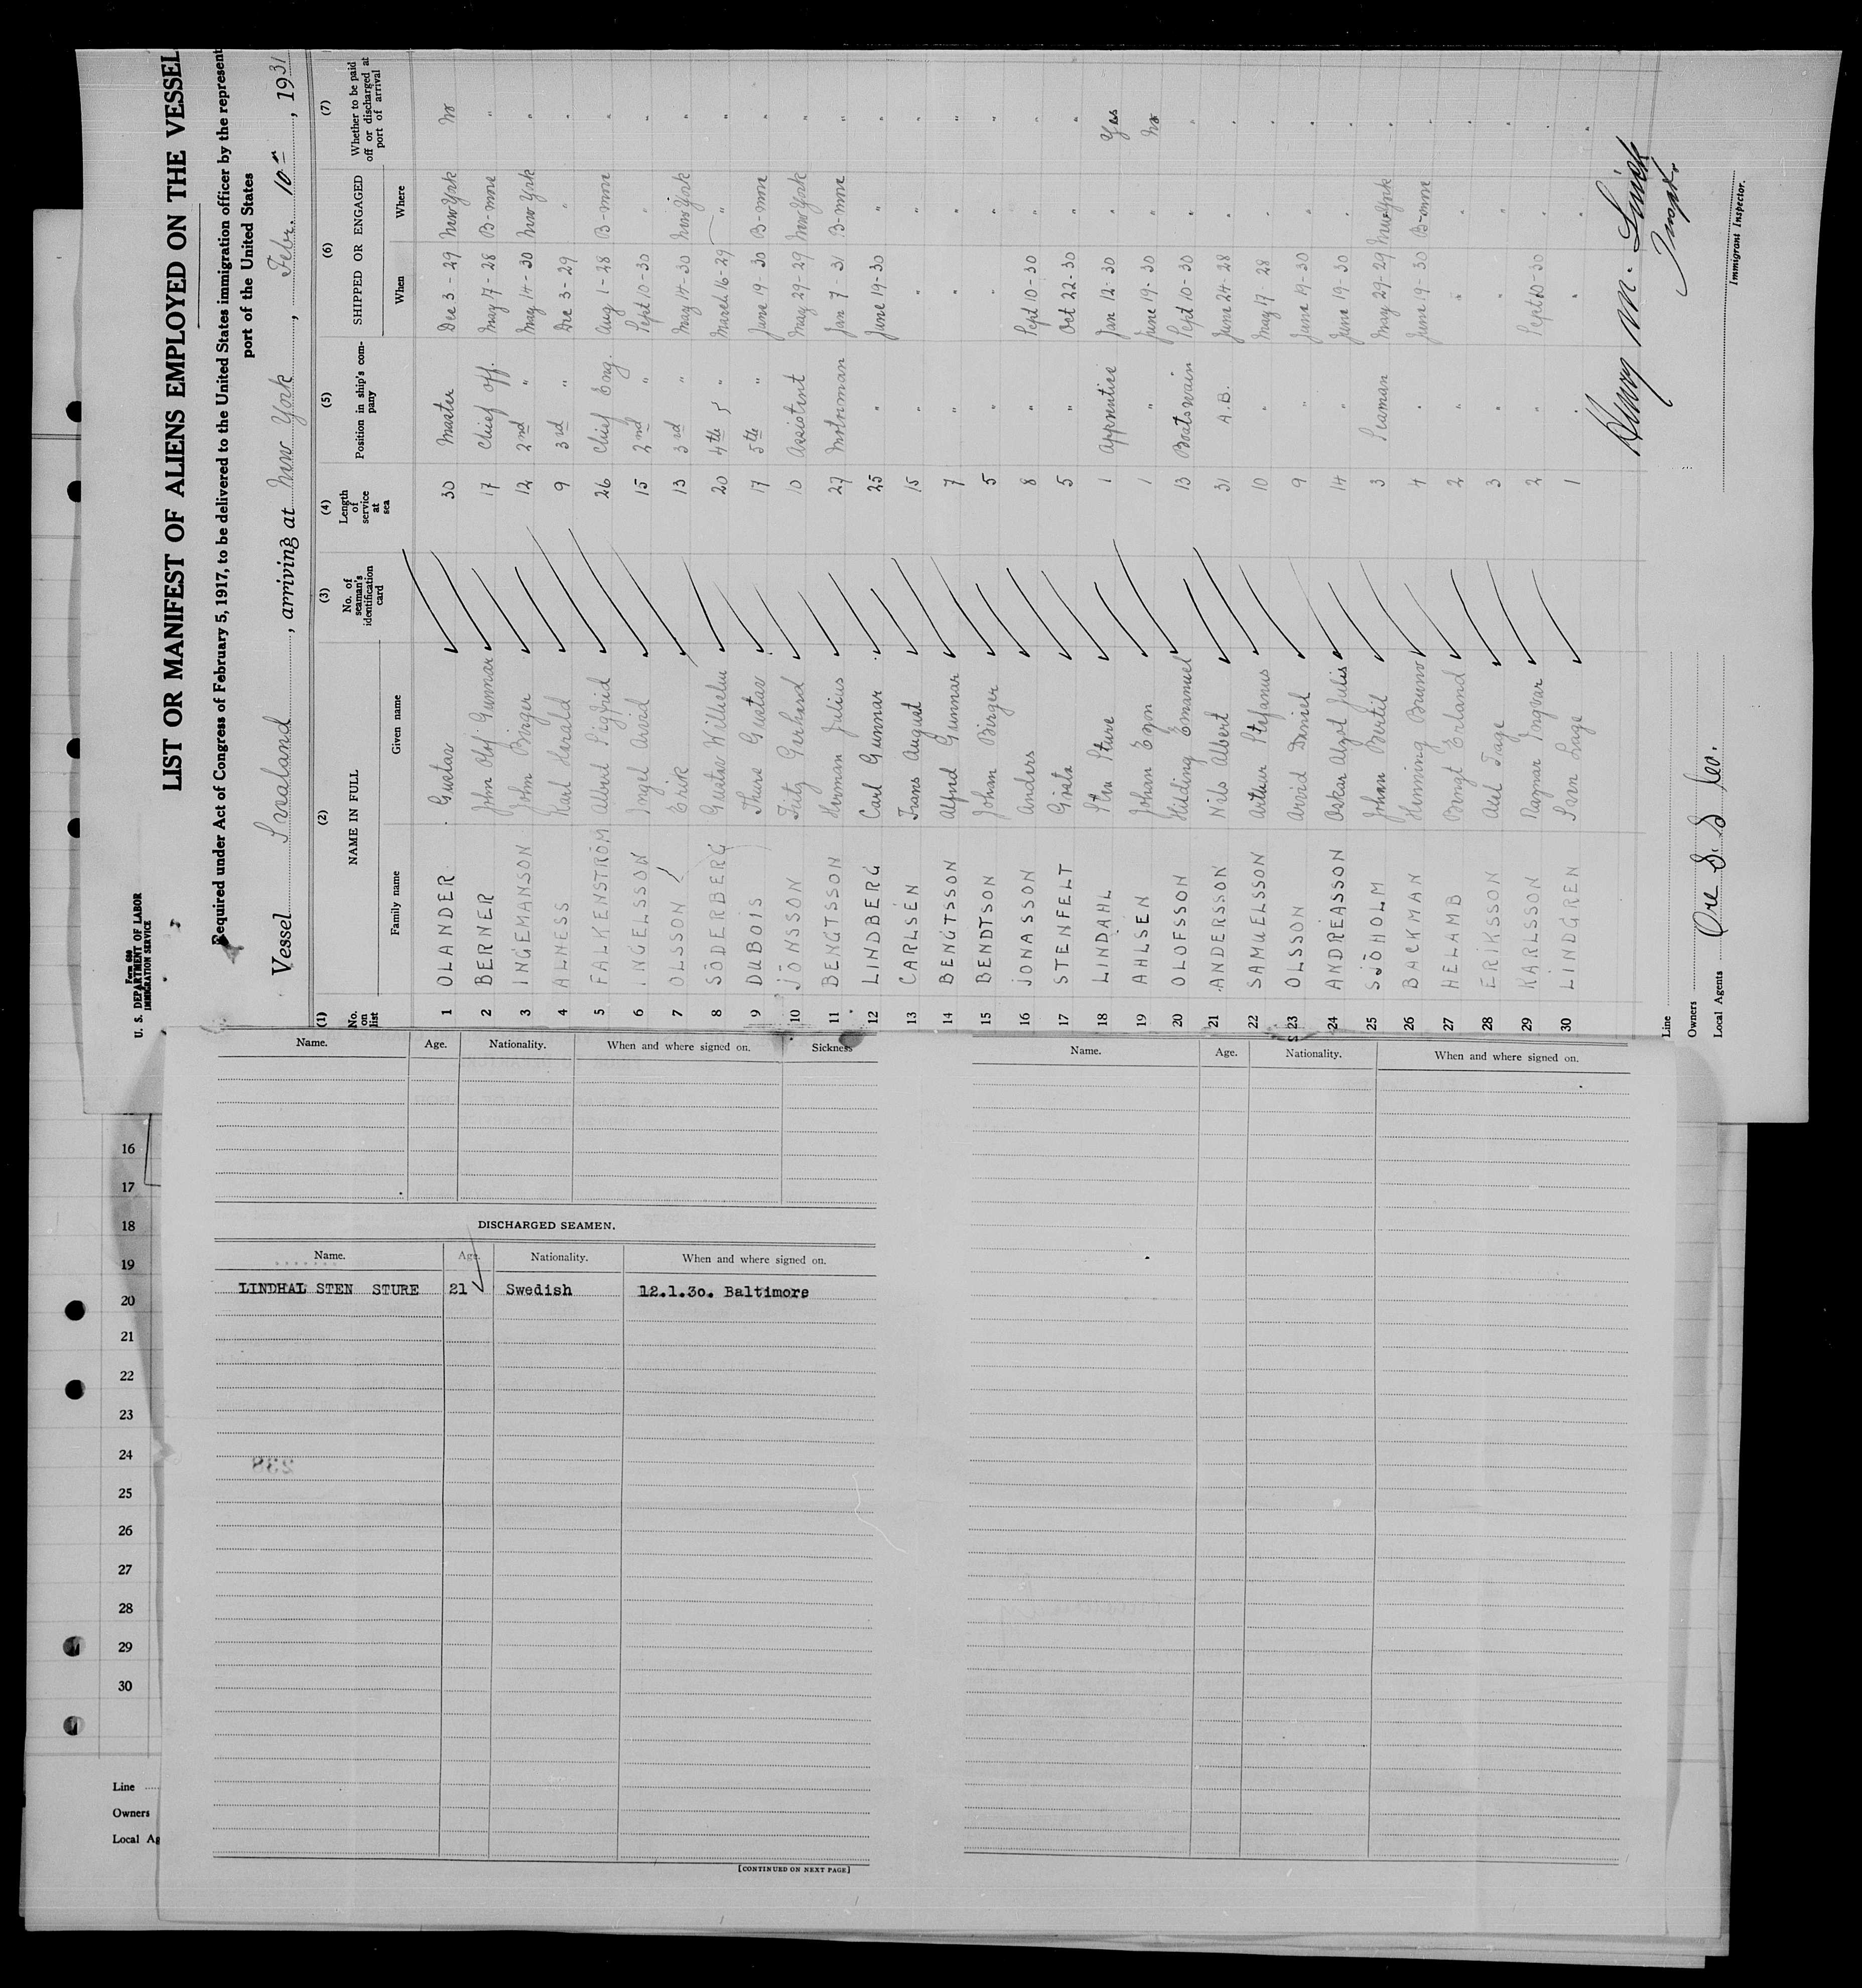 Form 686
U. S. DEPARTMENT OF LABOR
IMMIGRATION SERVICE
LIST OR MANIFEST OF ALIENS EMPLOYED ON THE VESSEL
Required under Act of Congress of February 5, 1917, to be delivered to the United States immigration officer by the represent
port of the United States
Vessel Svealand, arriving at New York, Febr. 10th, 1931
(1) (2) (3) (4) (5) (6) (7)
No. on list NAME IN FULL No. of seaman's identification card Length of service at sea Position in ship's company SHIPPED OR ENGAGED Whether to be paid off or discharged at port of arrival
Family name Given name When Where
1 OLANDER Gustav 30 Master Dec 3-29 New York No
2 BERNER John Olof Gunnar 17 Chief Off. May 17-28 B-more "
3 INGEMANSON John Birger 12 2nd " May 14-30 New York "
4 ALNESS Karl Harald 9 3rd " Dec 3-29 " "
5 FALKENSTRÖM Albert Sigfrid 26 Chief Eng. Aug 1-28 B-more "
6 INGELSSON Ingel Arvid 15 2nd " Sept 10-30 " "
7 OLSSON Erik 13 3rd " May 14-30 New York "
8 SÖDERBERG Gustav Wilhelm 20 4th " March 16-29 " "
9 DUBOIS Thure Gustav 17 5th " June 19-30 B-more "
10 JÖNSSON Fritz Gerhard 10 Assistent May 29-29 New York "
11 BENGTSSON Herman Julius 27 Motorman Jan 7-31 B-more "
12 LINDBERG Carl Gunnar 25 " June 19-30 " "
13 CARLSÉN Frans August 15 " " " "
14 BENGTSSON Alfred Gunnar 7 " " " "
15 BENDTSON John Birger 5 " " " "
16 JONASSON Anders 8 " Sept 10-30 " "
17 STENFELT Gösta 5 " Oct 22-30 " "
18 LINDAHL Sten Sture 1 Apprentice Jan 12-30 " Yes
19 AHLSÉN Johan Egon 1 " June 19-30 " No
20 OLOFSSON Hilding Emanuel 13 Boatswain Sept 10-30 " "
21 ANDERSSON Nils Albert 31 A.B. June 24-28 " "
22 SAMUELSSON Artur Stefanus 10 " May 17-28 " "
23 OLSSON Arvid Daniel 9 " June 19-30 " "
24 ANDRÉASSON Oskar Algot Julis 14 " June 19-30 " "
25 SJÖHOLM John Bertil 3 Seaman May 29-29 New York "
26 BACKMAN Henning Bruno 4 " June 19-30 B-more "
27 HELAMB Bengt Erland 2 " " " "
28 ERIKSSON Axel Tage 3 " " " "
29 KARLSSON Ragnar Ingvar 2 " Sept 10-30 " "
30 LINDGREN Sven Lage 1 " " " "
Henry M. Smith
Inspt.
Line
Owners Ore S. S. Co.
Local Agents
Immigrant Inspector.
Name. Age. Nationality. When and where signed on. Sickness
Name. Age. Nationality. When and where signed on.
DISCHARGED SEAMEN.
Name. Age. Nationality. When and where signed on.
LINDHAL STEN STURE 21 Swedish 12.1.3o. Baltimore
238
[CONTINUED ON NEXT PAGE]
16
17
18
19
20
21
22
23
24
25
26
27
28
29
30
Line
Owners
Local Ag